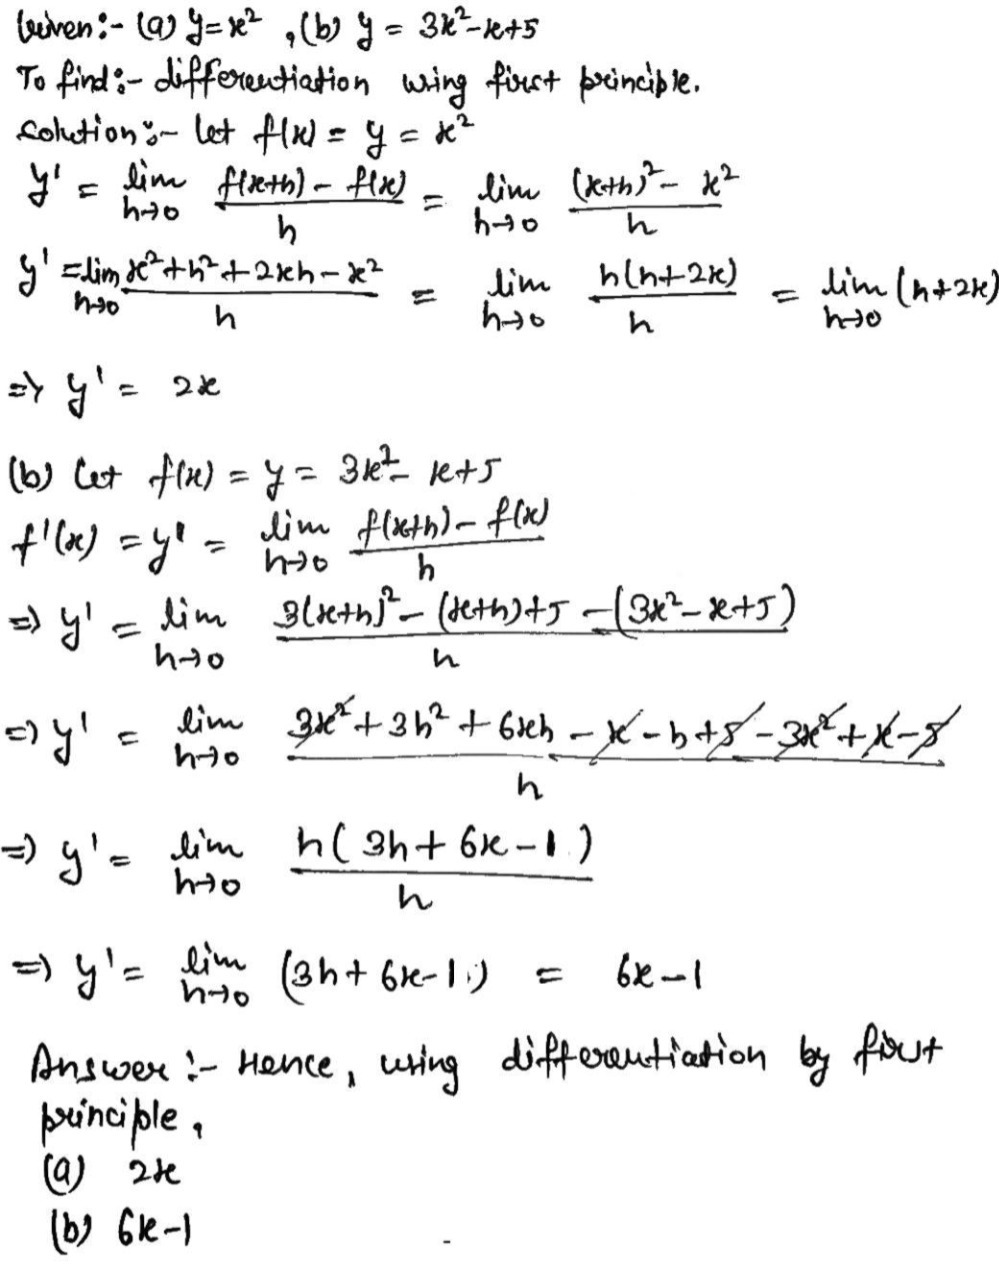 Given:- (a) y=x² , (b) y = 3x²-x+5
To find:- differentiation using first principle.
Solution:- let f(x) = y = x²
y' = lim h→0 (f(x+h) - f(x))/h = lim h→0 ((x+h)² - x²)/h
y' = lim h→0 (x²+h²+2xh-x²)/h = lim h→0 h(h+2x)/h = lim h→0 (h+2x)
⇒ y' = 2x
(b) Let f(x) = y = 3x²- x+5
f'(x) = y' = lim h→0 (f(x+h) - f(x))/h
⇒ y' = lim h→0 (3(x+h)² - (x+h)+5 -(3x²-x+5))/h
⇒ y' = lim h→0 (3x²+3h²+6xh -x-h+5-3x²+x-5)/h
⇒ y' = lim h→0 h(3h+6x-1)/h
⇒ y' = lim h→0 (3h+6x-1) = 6x-1
Answer:- Hence, using differentiation by first
principle,
(a) 2x
(b) 6x-1